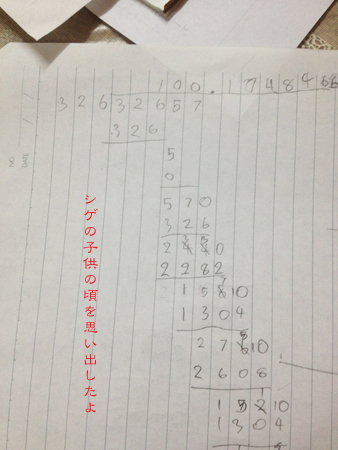 100.174846
326 32657
326
5
0
570
326
2440
2282
1580
1304
2760
2608
1520
1304
シゲの子供の頃を思い出したよ